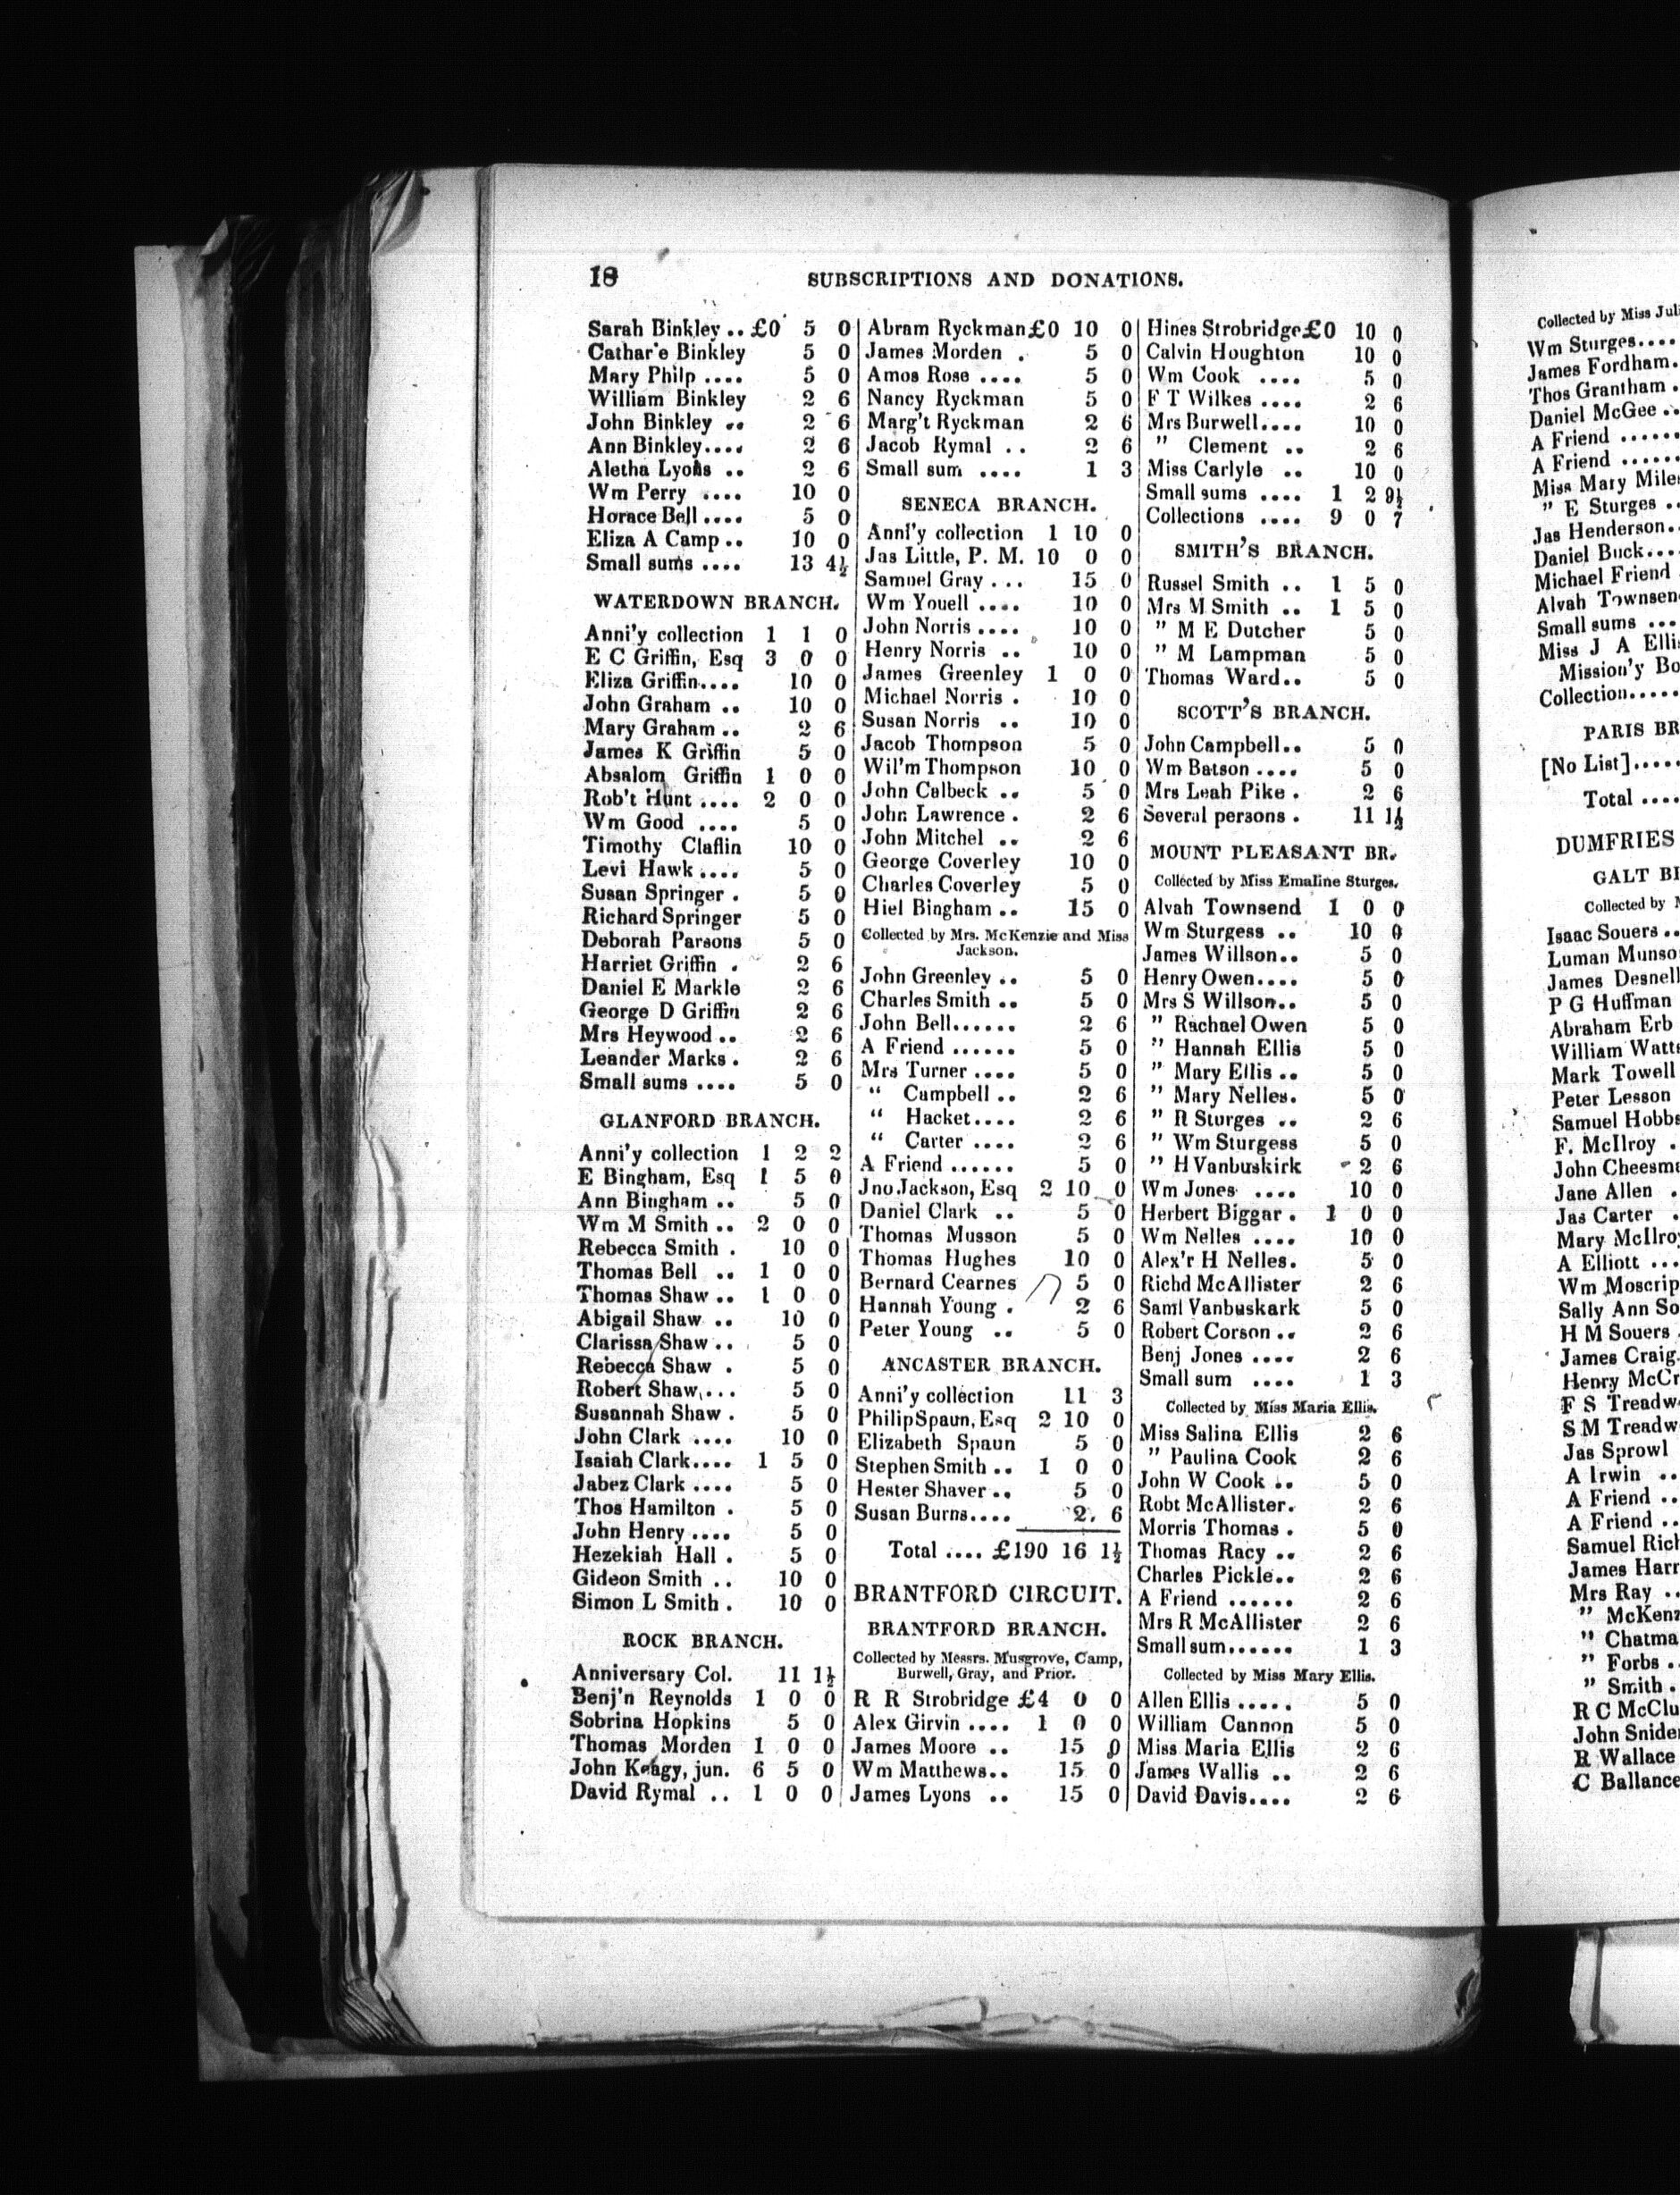 18 SUBSCRIPTIONS AND DONATIONS.
Sarah Binkley .. £0 5 0
Cathar'e Binkley 5 0
Mary Philp .... 5 0
William Binkley 2 6
John Binkley .. 2 6
Ann Binkley.... 2 6
Aletha Lyons .. 2 6
Wm Perry .... 10 0
Horace Bell .... 5 0
Eliza A Camp .. 10 0
Small sums .... 13 4½
WATERDOWN BRANCH.
Anni'y collection 1 1 0
E C Griffin, Esq 3 0 0
Eliza Griffin.... 10 0
John Graham .. 10 0
Mary Graham .. 2 6
James K Griffin 5 0
Absalom Griffin 1 0 0
Rob't Hunt .... 2 0 0
Wm Good .... 5 0
Timothy Claflin 10 0
Levi Hawk .... 5 0
Susan Springer . 5 0
Richard Springer 5 0
Deborah Parsons 5 0
Harriet Griffin . 2 6
Daniel E Markle 2 6
George D Griffin 2 6
Mrs Heywood .. 2 6
Leander Marks . 2 6
Small sums .... 5 0
GLANFORD BRANCH.
Anni'y collection 1 2 2
E Bingham, Esq 1 5 0
Ann Bingham .. 5 0
Wm M Smith .. 2 0 0
Rebecca Smith . 10 0
Thomas Bell .. 1 0 0
Thomas Shaw .. 1 0 0
Abigail Shaw .. 10 0
Clarissa Shaw .. 5 0
Rebecca Shaw . 5 0
Robert Shaw.... 5 0
Susannah Shaw . 5 0
John Clark .... 10 0
Isaiah Clark.... 1 5 0
Jabez Clark .... 5 0
Thos Hamilton . 5 0
John Henry .... 5 0
Hezekiah Hall . 5 0
Gideon Smith .. 10 0
Simon L Smith . 10 0
ROCK BRANCH.
Anniversary Col. 11 1½
Benj'n Reynolds 1 0 0
Sobrina Hopkins 5 0
Thomas Morden 1 0 0
John Keagy, jun. 6 5 0
David Rymal .. 1 0 0
Abram Ryckman £0 10 0
James Morden . 5 0
Amos Rose .... 5 0
Nancy Ryckman 5 0
Marg't Ryckman 2 6
Jacob Rymal .. 2 6
Small sum .... 1 3
SENECA BRANCH.
Anni'y collection 1 10 0
Jas Little, P. M. 10 0 0
Samuel Gray ... 15 0
Wm Youell .... 10 0
John Norris .... 10 0
Henry Norris .. 10 0
James Greenley 1 0 0
Michael Norris . 10 0
Susan Norris .. 10 0
Jacob Thompson 5 0
Wil'm Thompson 10 0
John Calbeck .. 5 0
John Lawrence . 2 6
John Mitchel .. 2 6
George Coverley 10 0
Charles Coverley 5 0
Hiel Bingham .. 15 0
Collected by Mrs. McKenzie and Miss
Jackson.
John Greenley .. 5 0
Charles Smith .. 5 0
John Bell...... 2 6
A Friend ...... 5 0
Mrs Turner .... 5 0
“ Campbell .. 2 6
“ Hacket.... 2 6
“ Carter .... 2 6
A Friend ...... 5 0
Jno Jackson, Esq 2 10 0
Daniel Clark .. 5 0
Thomas Musson 5 0
Thomas Hughes 10 0
Bernard Cearnes 5 0
Hannah Young . 2 6
Peter Young .. 5 0
ANCASTER BRANCH.
Anni'y collection 11 3
Philip Spaun, Esq 2 10 0
Elizabeth Spaun 5 0
Stephen Smith .. 1 0 0
Hester Shaver .. 5 0
Susan Burns.... 2 6
Total .... £190 16 1½
BRANTFORD CIRCUIT.
BRANTFORD BRANCH.
Collected by Messrs. Musgrove, Camp,
Burwell, Gray, and Prior.
R R Strobridge £4 0 0
Alex Girvin .... 1 0 0
James Moore .. 15 0
Wm Matthews.. 15 0
James Lyons .. 15 0
Hines Strobridge £0 10 0
Calvin Houghton 10 0
Wm Cook .... 5 0
F T Wilkes .... 2 6
Mrs Burwell.... 10 0
" Clement .. 2 6
Miss Carlyle .. 10 0
Small sums .... 1 2 9½
Collections .... 9 0 7
SMITH'S BRANCH.
Russel Smith .. 1 5 0
Mrs M Smith .. 1 5 0
" M E Dutcher 5 0
" M Lampman 5 0
Thomas Ward.. 5 0
SCOTT'S BRANCH.
John Campbell.. 5 0
Wm Batson .... 5 0
Mrs Leah Pike . 2 6
Several persons . 11 1½
MOUNT PLEASANT BR.
Collected by Miss Emaline Sturges.
Alvah Townsend 1 0 0
Wm Sturgess .. 10 0
James Willson.. 5 0
Henry Owen.... 5 0
Mrs S Willson.. 5 0
" Rachael Owen 5 0
" Hannah Ellis 5 0
" Mary Ellis .. 5 0
" Mary Nelles. 5 0
" R Sturges .. 2 6
" Wm Sturgess 5 0
" H Vanbuskirk 2 6
Wm Jones .... 10 0
Herbert Biggar . 1 0 0
Wm Nelles .... 10 0
Alex'r H Nelles. 5 0
Richd McAllister 2 6
Saml Vanbuskark 5 0
Robert Corson .. 2 6
Benj Jones .... 2 6
Small sum .... 1 3
Collected by Miss Maria Ellis.
Miss Salina Ellis 2 6
" Paulina Cook 2 6
John W Cook .. 5 0
Robt McAllister. 2 6
Morris Thomas . 5 0
Thomas Racy .. 2 6
Charles Pickle.. 2 6
A Friend ...... 2 6
Mrs R McAllister 2 6
Small sum...... 1 3
Collected by Miss Mary Ellis.
Allen Ellis ..... 5 0
William Cannon 5 0
Miss Maria Ellis 2 6
James Wallis .. 2 6
David Davis.... 2 6
Collected by Miss
Wm Sturges....
James Fordham.
Thos Grantham .
Daniel McGee ..
A Friend ......
A Friend ......
Miss Mary
" E Sturges ..
Jas Henderson..
Daniel Buck....
Michael Friend
Alvah
Small sums ...
Miss J A
Mission'y
Collection.....
PARIS
[No List].....
Total ....
DUMFRIES
GALT
Collected by
Isaac Souers ..
Luman
James
P G Huffman
Abraham Erb
William
Mark Towell
Peter Lesson
Samuel
F. McIlroy .
John
Jane Allen .
Jas Carter .
Mary
A Elliott ...
Wm
Sally Ann
H M Souers .
James Craig.
Henry
F S
S M
Jas Sprowl
A Irwin ..
A Friend ..
A Friend ..
Samuel
James
Mrs Ray ..
"
"
" Forbs .
" Smith .
R C
John
R Wallace
C